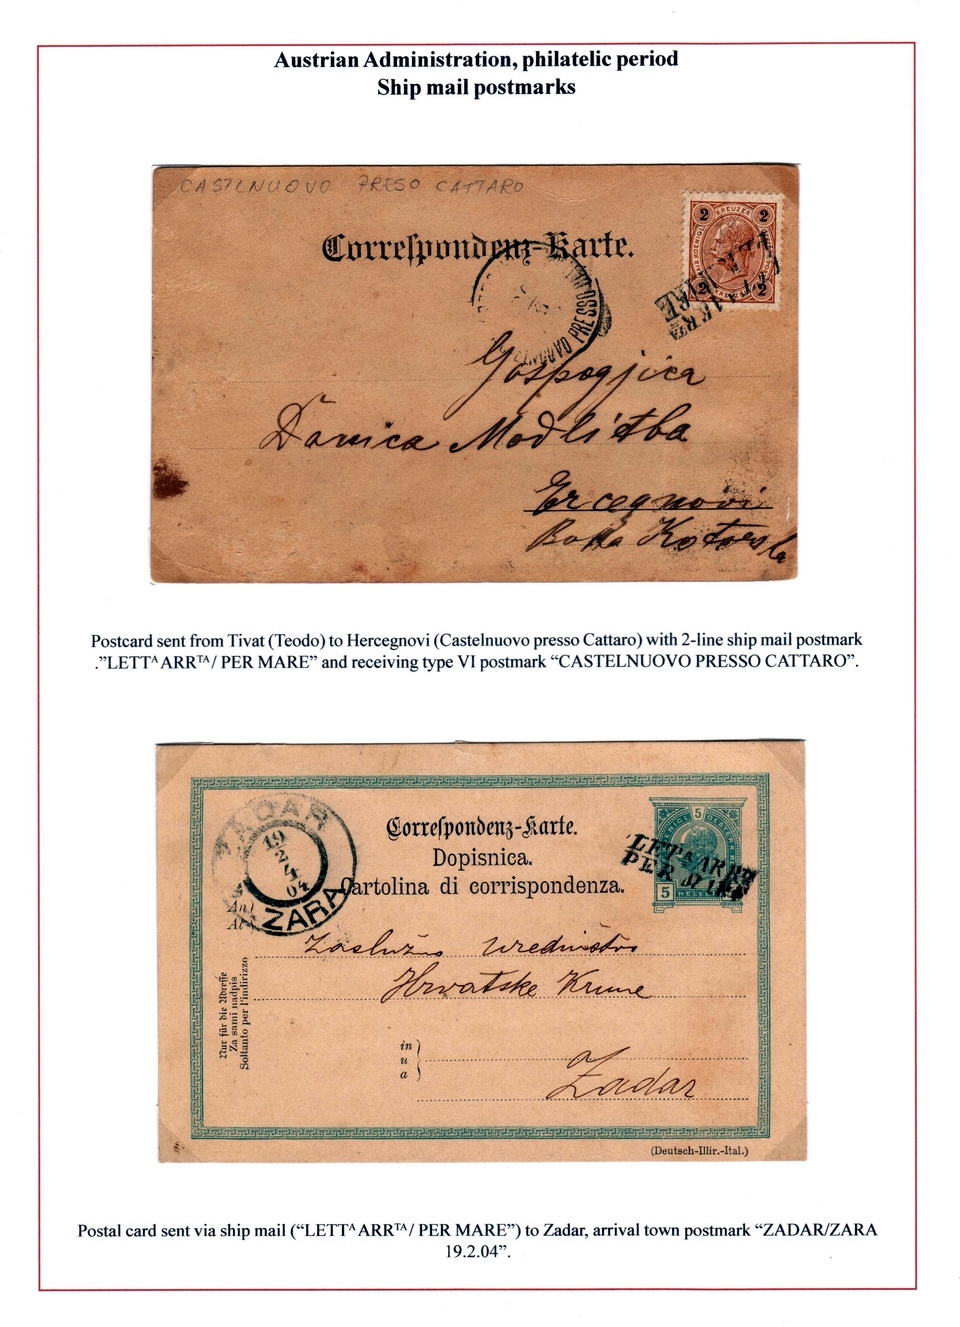 Austrian Administration, philatelic period
Ship mail postmarks
CASTLNUOVO PRESO CATTARO
2 KREUZER 2
2 2
Correſpondenz-Karte.
PRESSO
LETTA ARRTA
MARE
Gospogjica
Danica Modlitba
Ercegnovi
Boka Kotorska
Postcard sent from Tivat (Teodo) to Hercegnovi (Castelnuovo presso Cattaro) with 2-line ship mail postmark
.”LETTᴬ ARRᵀᴬ/ PER MARE” and receiving type VI postmark “CASTELNUOVO PRESSO CATTARO”.
ZADAR
19
2
4
04
ZARA
Correſpondenz-Karte.
Dopisnica.
Cartolina di corrispondenza.
5
5 HELLER
LETTA ARRTA
PER MARE
An
Al
Zaslužno uredništvo
Hrvatske Krune
Nur für die Adreſſe
Za sami nadpis
Soltanto per l'indirizzo
in
u
a
Zadar
(Deutsch-Illir.-Ital.)
Postal card sent via ship mail (“LETTᴬ ARRᵀᴬ/ PER MARE”) to Zadar, arrival town postmark “ZADAR/ZARA
19.2.04”.